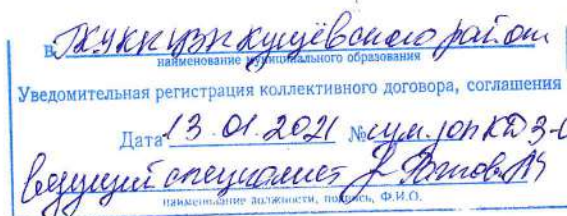 в ГКУ КК ЦЗН Кущёвского район
наименование муниципального образования
Уведомительная регистрация коллективного договора, соглашения
Дата 13.01.2021 № КД 3-
ведущий специалист
наименование должности, подпись, Ф.И.О.